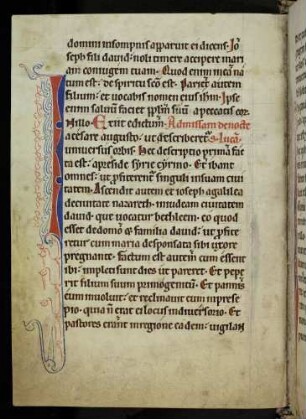 domini insompnis apparuit ei dicens. Jo
seph fili dauid: noli timere accipere mari
am coniugem tuam. Quod enim in ea na
tum est: de spiritu sco est. Pariet autem
filium: et uocabis nomen eius ihm. Ipse
enim saluum faciet pplm suum a peccatis eorum.
In illo. Exiit edictum Ad missam de nocte
a cesare augusto: ut describeret s. lucam
uniuersus orbis. Hec descriptio prima fac
ta est: a preside syrie cyrino. Et ibant
omnes: ut profiterent singuli in suam ciui
tatem. Ascendit autem et ioseph a galilea
de ciuitate nazareth: in iudeam ciuitatem
dauid. que uocatur bethleem: eo quod
esset de domo et familia dauid: ut profite
retur cum maria desponsata sibi uxore
pregnante. Factum est autem cum essent
ibi: impleti sunt dies ut pareret. Et pepe
rit filium suum primogenitum. Et pannis
eum inuoluit: et reclinauit eum in prese
pio. quia non erat ei locus in diuersorio. Et
pastores erant in regione eadem: uigilan